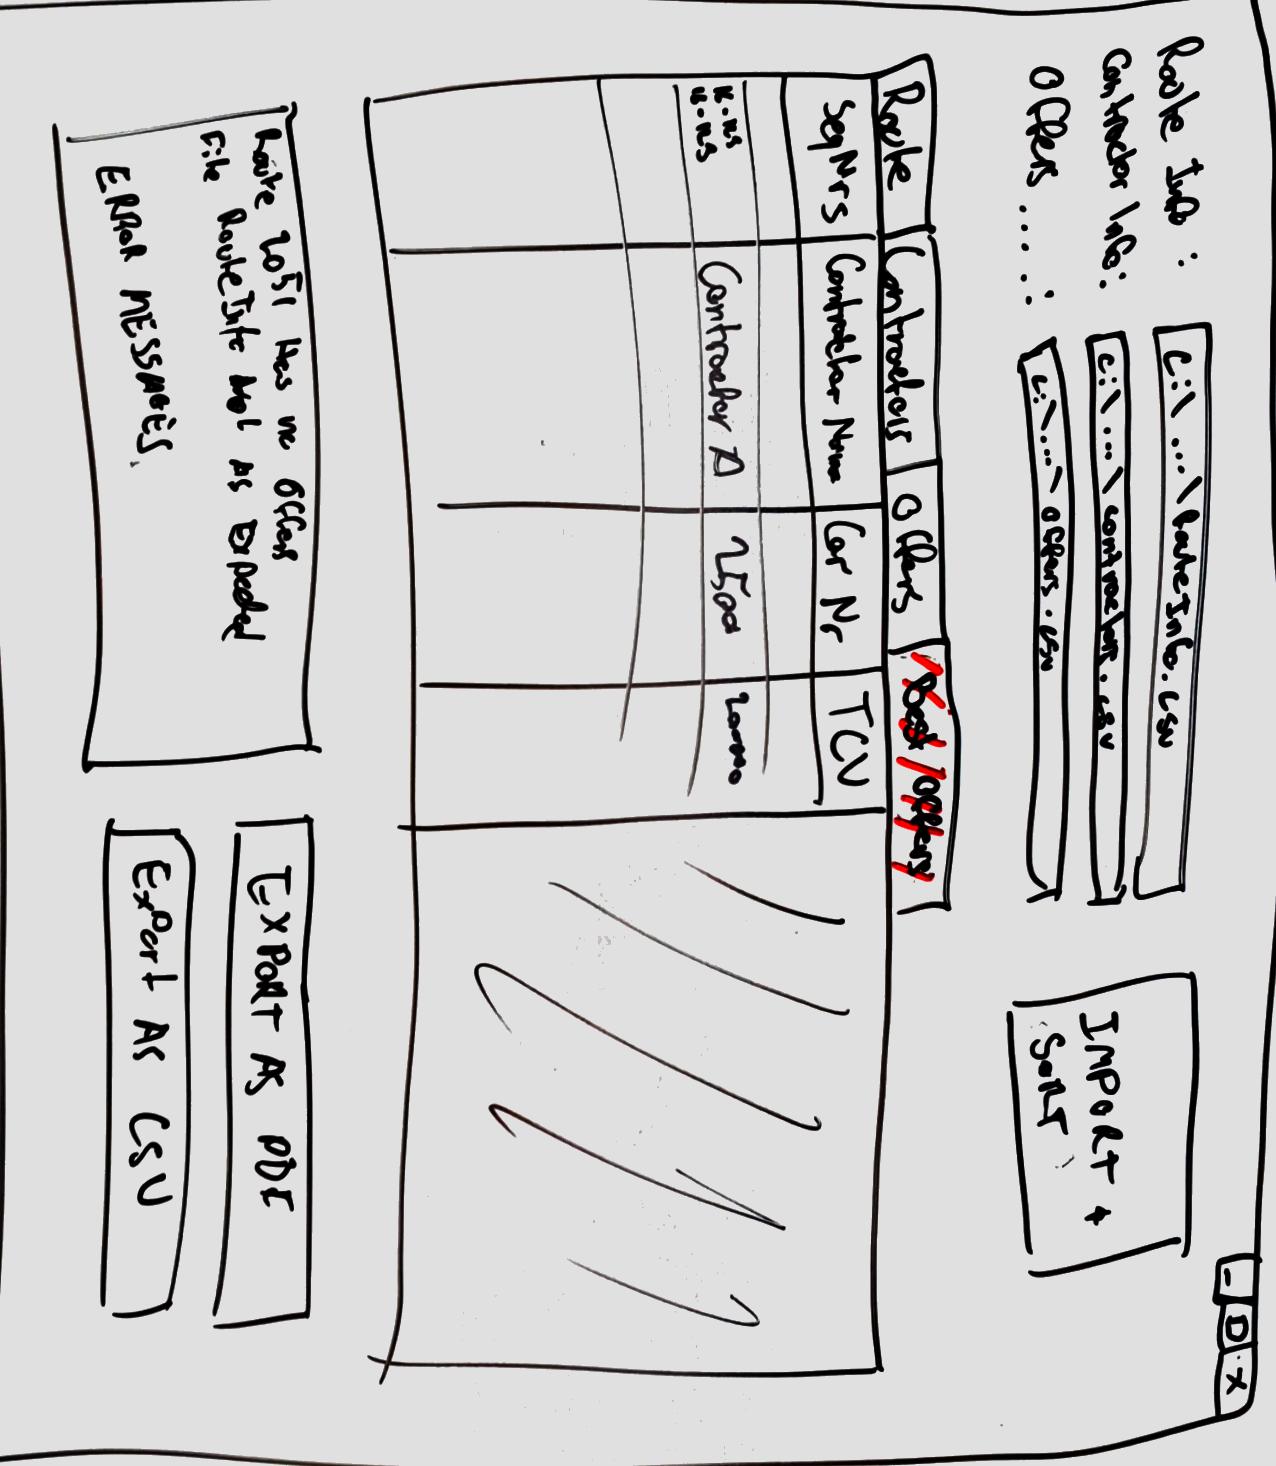 - D X
Route Info : C:\ ... \RouteInfo.csv
Contractor Info: C:\ ... \ contractors.csv
Offers ..... : C:\ ... \ offers.csv
IMPORT +
SORT
Route Contractors Offers Best Offers
SeqNrs Contractor Name Car Nr TCV
Contractor A 2500
Route 2051 Has no Offers
File RouteInfo Not As Expected
ERROR MESSAGES
EXPORT AS PDF
Export As CSV